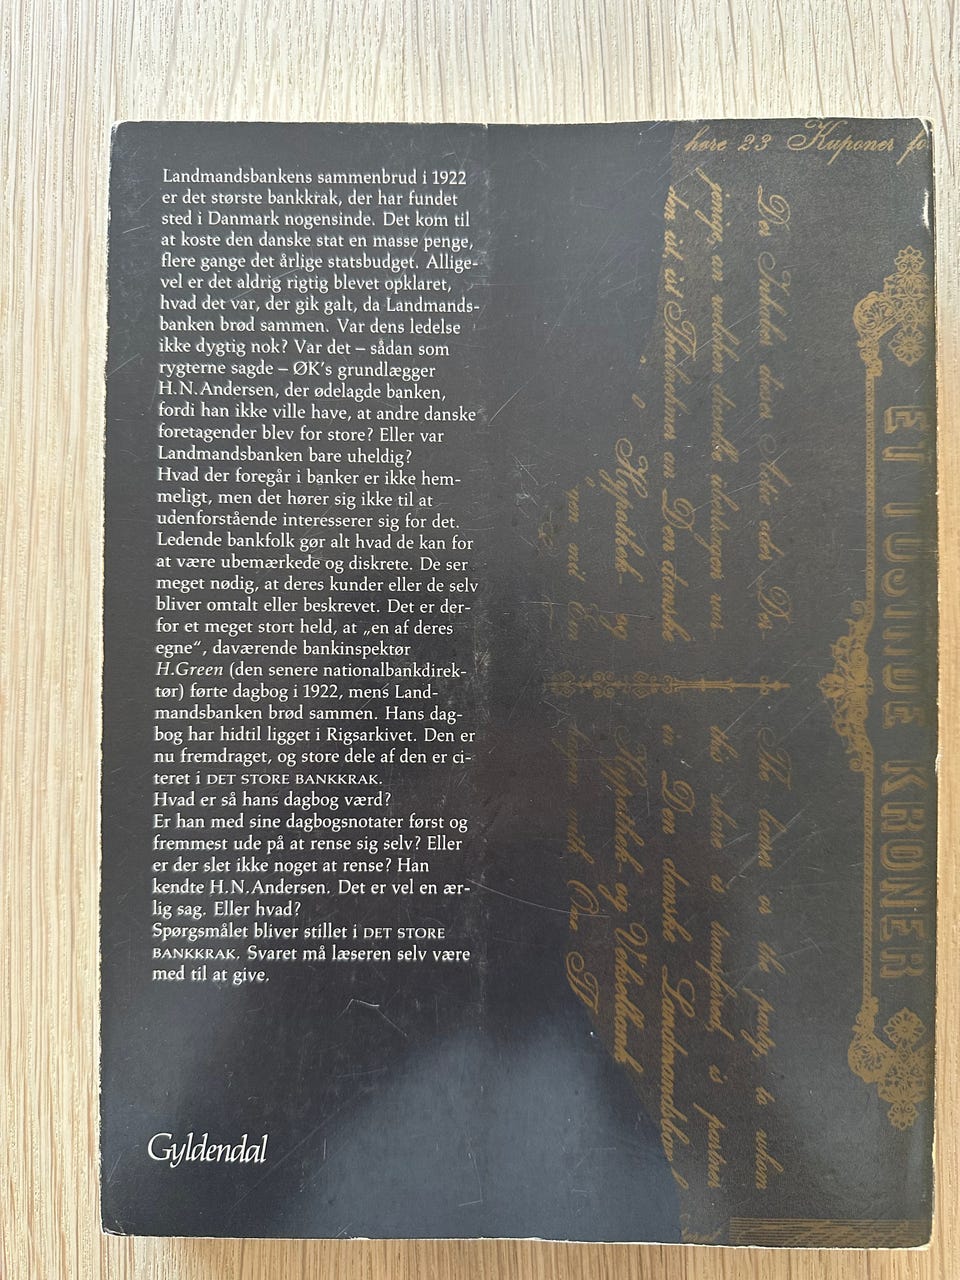 Landmandsbankens sammenbrud i 1922
er det største bankkrak, der har fundet
sted i Danmark nogensinde. Det kom til
at koste den danske stat en masse penge,
flere gange det årlige statsbudget. Allige-
vel er det aldrig rigtig blevet opklaret,
hvad det var, der gik galt, da Landmands-
banken brød sammen. Var dens ledelse
ikke dygtig nok? Var det – sådan som
rygterne sagde – ØK's grundlægger
H.N.Andersen, der ødelagde banken,
fordi han ikke ville have, at andre danske
foretagender blev for store? Eller var
Landmandsbanken bare uheldig?
Hvad der foregår i banker er ikke hem-
meligt, men det hører sig ikke til at
udenforstående interesserer sig for det.
Ledende bankfolk gør alt hvad de kan for
at være ubemærkede og diskrete. De ser
meget nødig, at deres kunder eller de selv
bliver omtalt eller beskrevet. Det er der-
for et meget stort held, at „en af deres
egne“, daværende bankinspektør
H.Green (den senere nationalbankdirek-
tør) førte dagbog i 1922, mens Land-
mandsbanken brød sammen. Hans dag-
bog har hidtil ligget i Rigsarkivet. Den er
nu fremdraget, og store dele af den er ci-
teret i DET STORE BANKKRAK.
Hvad er så hans dagbog værd?
Er han med sine dagbogsnotater først og
fremmest ude på at rense sig selv? Eller
er der slet ikke noget at rense? Han
kendte H.N.Andersen. Det er vel en ær-
lig sag. Eller hvad?
Spørgsmålet bliver stillet i DET STORE
BANKKRAK. Svaret må læseren selv være
med til at give.
Gyldendal
høre 23 Kuponer
ET TUSINDE KRONER
Der Inhaber dieser Actie oder Der-
jenige, an welchen dieselbe übertragen wor-
den ist, ist Theilnehmer an Den danske
Hypothek- og
The bearer or the party, to whom
this share is transferred, is partner
in Den danske Landmandsbank
Hypothek- og Vekselbank